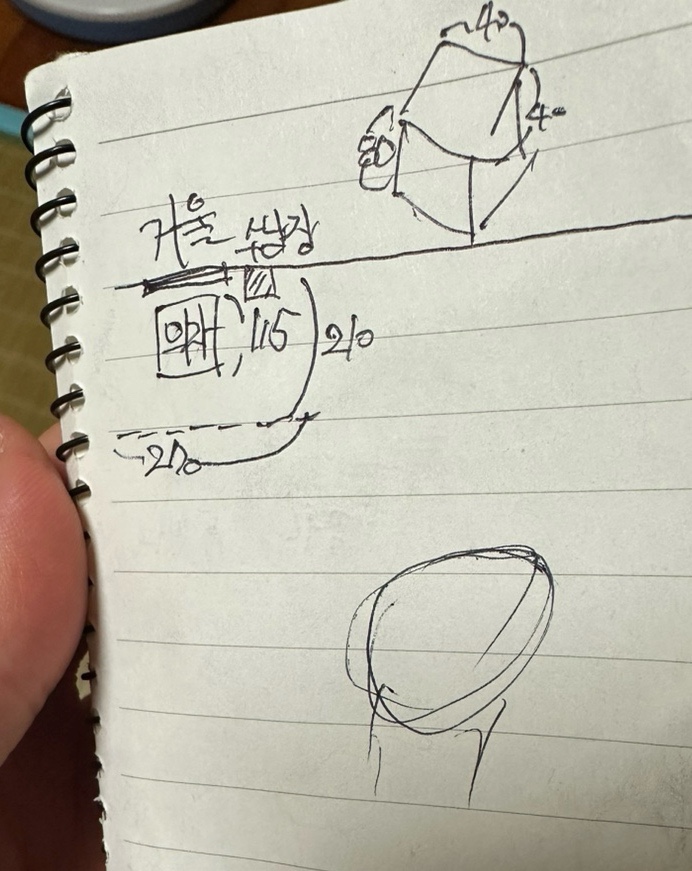 40
40
80
거울 쌍장
의자 115 210
210